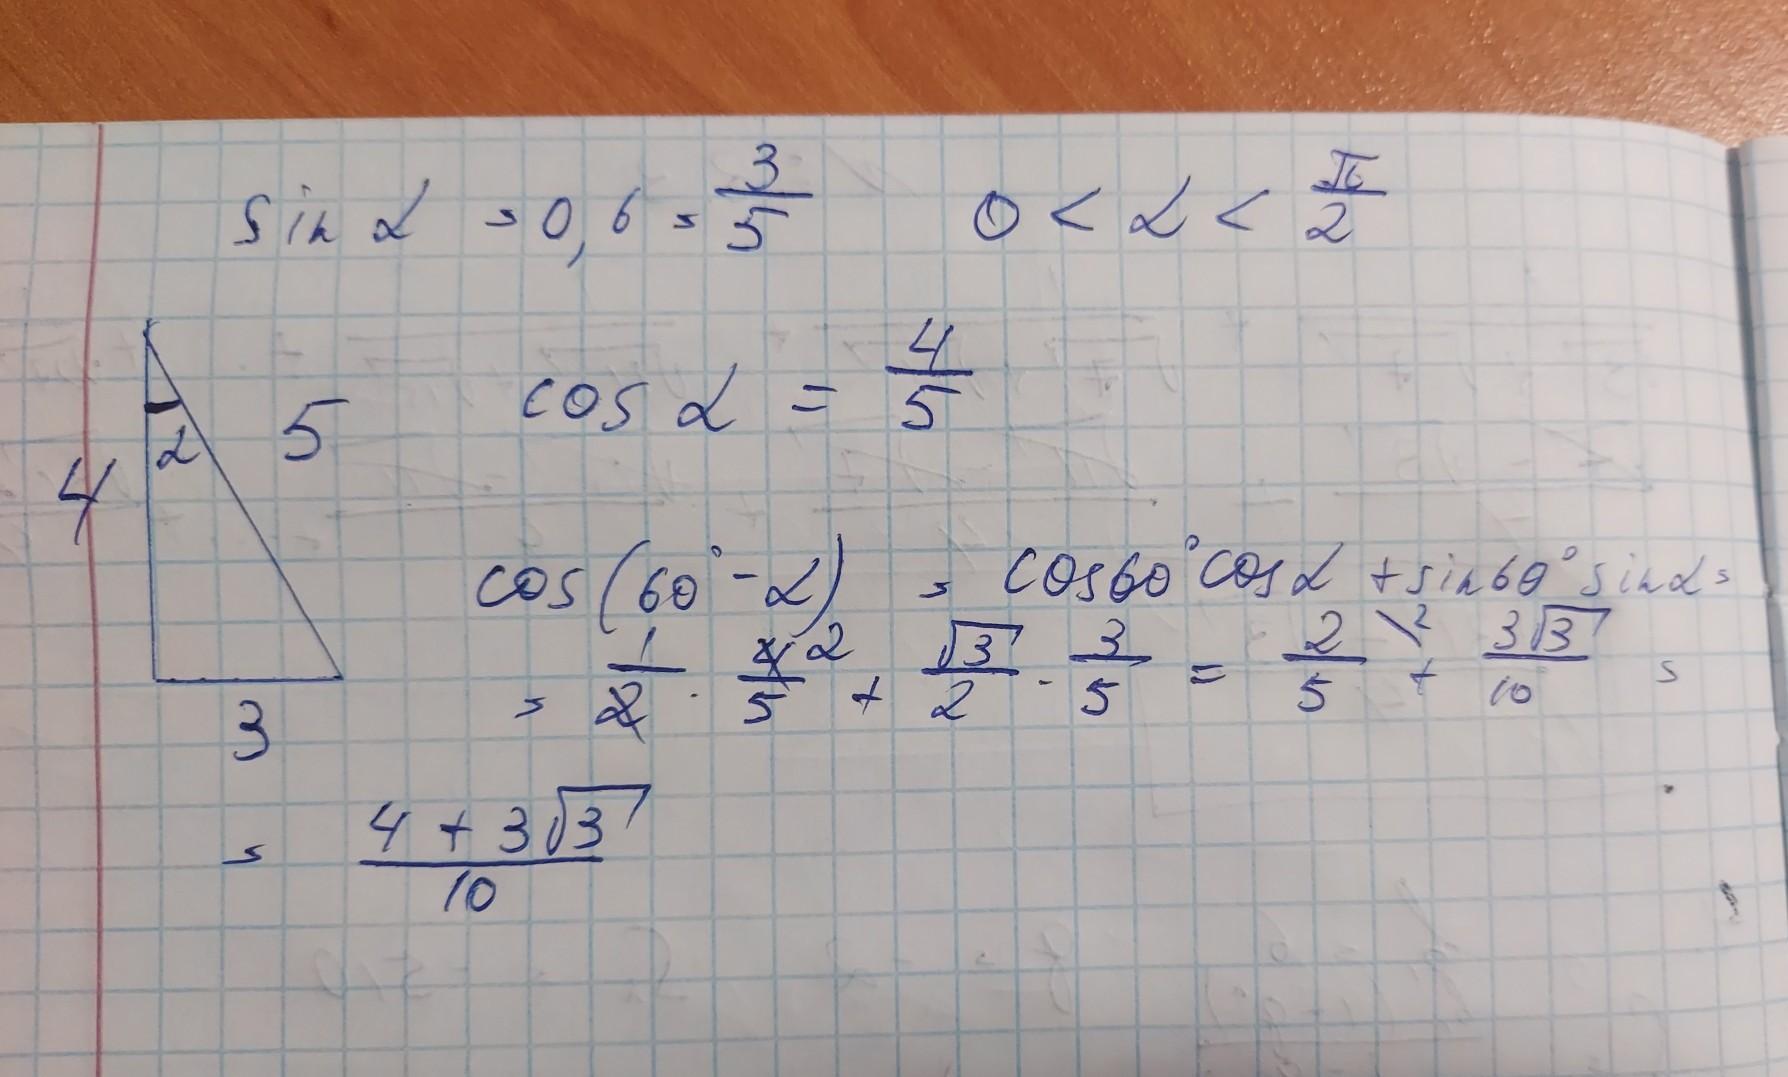 sin α = 0,6 = 3/5   0 < α < π/2
4 α 5   cos α = 4/5
3
cos(60° - α) = cos60° cosα + sin60° sinα =
= 1/2 · 4/5 2 + √3/2 · 3/5 = 2/5 \2 + 3√3/10 =
= (4 + 3√3)/10